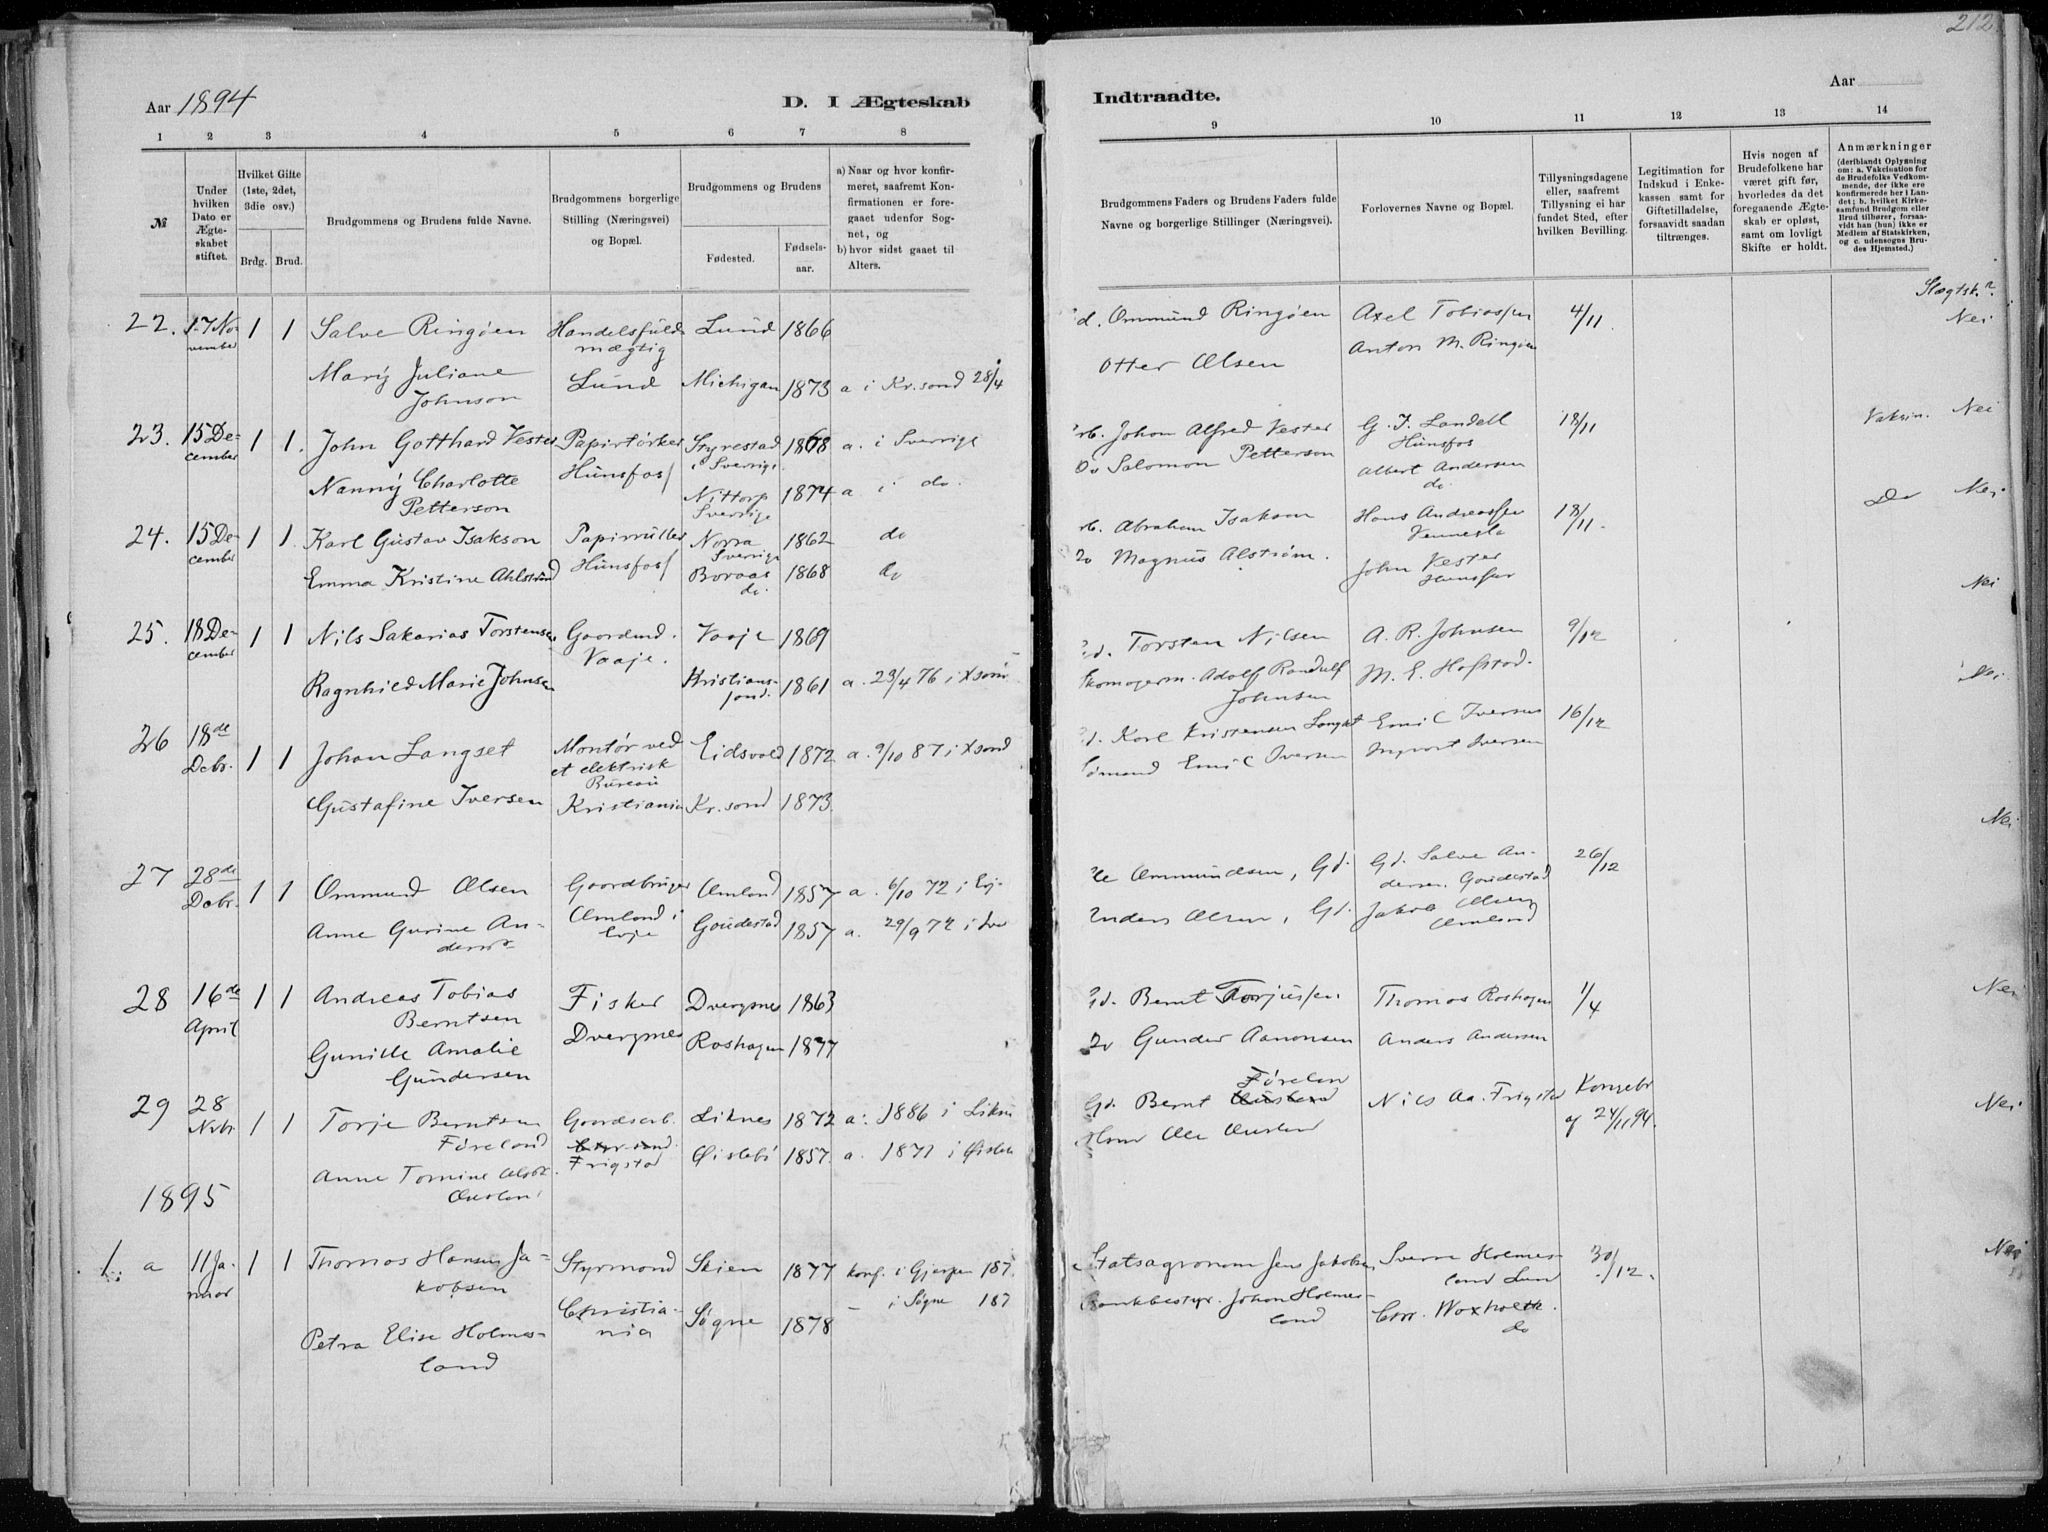 212
Aar 1894
D. I Ægteskab
Indtraadte.
Aar
1 2 3 4 5 6 7 8
9 10 11 12 13 14
№
Under hvilken Dato er Ægteskabet stiftet.
Hvilket Gifte (1ste, 2det, 3die osv.)
Brdg. Brud.
Brudgommens og Brudens fulde Navne.
Brudgommens borgerlige Stilling (Næringsvei) og Bopæl.
Brudgommens og Brudens
Fødested.
Fødselsaar.
a) Naar og hvor konfirmeret, saafremt Konfirmationen er foregaaet udenfor Sognet, og
b) hvor sidst gaaet til Alters.
Brudgommens Faders og Brudens Faders fulde Navne og borgerlige Stillinger (Næringsvei).
Forlovernes Navne og Bopæl.
Tillysningsdagene eller, saafremt Tillysning ei har fundet Sted, efter hvilken Bevilling.
Legitimation for Indskud i Enkekassen samt for Giftetilladelse, forsaavidt saadan tiltrænges.
Hvis nogen af Brudefolkene har været gift før, hvorledes da det foregaaende Ægteskab er opløst, samt om lovligt Skifte er holdt.
Anmærkninger
(deriblandt Oplysning om: a. Vakcination for de Brudefolks Vedkommende, der ikke ere konfirmerede her i Landet; b. hvilket Kirkesamfund Brudgom eller Brud tilhører, forsaavidt han (hun) ikke er Medlem af Statskirken, og c. udensogns Brudes Hjemsted.)
22. 17 November 1 1 Salve Ringøen Handelsfuldmægtig Lund 1866
Ommund Ringøen Axel Tobiassen 4/11. Slægtsk.? Nei
Mary Juliane Johnson Lund Michigan 1873 a i Kr.sand 28/4
Otter Olsen Anton M. Ringøen
23. 15 December 1 1. John Gotthard Vester Papirtørker Styrestad i Sverrige 1868 a. i Sverrige
Johan Alfred Vester G. I. Landell Hunsfos 18/11 Vaksin. Nei
Nanny Charlotte Petterson Hunsfos Nittorp Sverrige 1874 a i do.
Salomon Petterson Albert Andersen do.
24. 15 December 1 1 Karl Gustav Isakson Papirruller Norra Sverrige 1862 do
Abraham Isakson Hans Andreassen Vennesla 18/11. Do Nei
Emma Kristine Ahlstrønd Hunsfos Boraas do. 1868 do
Magnus Alstrøm. John Vester Hunsfos
25. 18 December 1 1 Nils Sakarias Torstensen Gaardmd. Vaaje. Vaaje 1869
Torsten Nilsen A. R. Johnsen 9/12 Nei
Ragnhild Marie Johnsen Khristianssand. 1861 a. 23/4 76 i Xsand
Skomagerm. Adolf Randulf Johnsen M. E. Hofstad.
26 18de Debr. 1 1 Johan Langset Montør ved et elektrisk Bureau Eidsvold 1872 a. 9/10 87 i Xsand
Karl Kristensen Langset Emil Iversen 16/12 Nei
Gustafine Iversen Kristiania Kr.sand 1873.
Sømand Emil Iversen Ingvart Iversen
27 28de Debr. 1 1 Ommund Olsen Gaardbruger Omland 1857 a. 6/10 72 i Evje
Ole Ommundsen, Gd. Gd. Salve Andersen. Goudestad 26/12 Nei
Anne Gurine Andersdr Omland i Evje Goudestad 1857 a. 29/9 72 i Eve
Anders Olsen, Gd. Jakob Olsen Omland
28 16de April 1 1 Andreas Tobias Berntsen Fisker Dvergsnes 1863
Gd. Bernt Torjussen Thomas Roshagen 1/4 Nei
Gunille Amalie Gundersen Dvergsnes Roshagen 1877
Do Gunder Aanonsen Anders Andersen
29 28 Nvbr. 1 1 Torje Berntsen Føreland Gaardsarb. Liknes 1872 a. 1886 i Likn
Gd. Bernt Føreland Nils Aa. Frigstad Kongebr af 24/11 94. Nei
Anne Tomine Olsdtr. Ousland Frigstad Øislebø 1857. a. 1871 i Øisleb
Ole Ousland
1895
1. a 11 Januar 1 1 Thomas Hansen Jakobsen Styrmand Skien 1877 konf. i Gjerpen 187
Statsagronom Jens Jakobsen Sverre Holmesland Lund 30/12. Nei
Petra Elise Holmesland Christiania Søgne 1878 – i Søgne 187
Bankbestyr. Johan Holmesland Chr. Woxholth. do